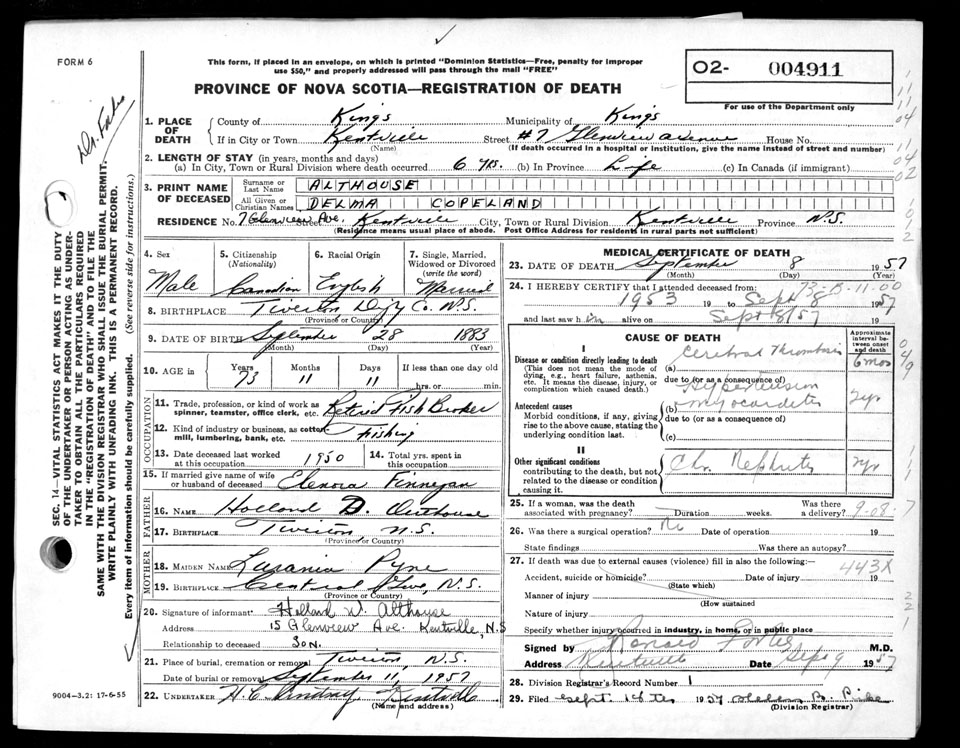 FORM 6
This form, if placed in an envelope, on which is printed "Dominion Statistics—Free, penalty for improper
use $50," and properly addressed will pass through the mail "FREE"
PROVINCE OF NOVA SCOTIA—REGISTRATION OF DEATH
O2- 004911
For use of the Department only
Dr. Forbes
SEC. 14—VITAL STATISTICS ACT MAKES IT THE DUTY
OF THE UNDERTAKER OR PERSON ACTING AS UNDER-
TAKER TO OBTAIN ALL THE PARTICULARS REQUIRED
IN THE "REGISTRATION OF DEATH" AND TO FILE THE
SAME WITH THE DIVISION REGISTRAR WHO SHALL ISSUE THE BURIAL PERMIT.
WRITE PLAINLY WITH UNFADING INK. THIS IS A PERMANENT RECORD.
Every item of information should be carefully supplied. (See reverse side for instructions.)
1. PLACE OF DEATH
County of Kings Municipality of Kings
If in City or Town Kentville Street #7 Glenview Avenue House No.
(Name) (If death occurred in a hospital or institution, give the name instead of street and number)
2. LENGTH OF STAY (in years, months and days)
(a) In City, Town or Rural Division where death occurred 6 yrs. (b) In Province Life (c) In Canada (if immigrant)
3. PRINT NAME OF DECEASED
Surname or Last Name ALTHOUSE
All Given or Christian Names DELMA COPELAND
RESIDENCE No. 7 Glenview Ave. Street Kentville City, Town or Rural Division Kentville Province N.S.
(Residence means usual place of abode. Post Office Address for residents in rural parts not sufficient)
4. Sex
Male
5. Citizenship (Nationality)
Canadian
6. Racial Origin
English
7. Single, Married, Widowed or Divorced (write the word)
Married
8. BIRTHPLACE Tiverton, Digby Co. N.S.
(Province or Country)
9. DATE OF BIRTH September 28 1883
(Month) (Day) (Year)
10. AGE in Years 73 Months 11 Days 11 If less than one day
hrs. or min.
OCCUPATION
11. Trade, profession, or kind of work as
spinner, teamster, office clerk, etc. Retired Fish Broker
12. Kind of industry or business, as cotton-
mill, lumbering, bank, etc. Fishing
13. Date deceased last worked
at this occupation 1950
14. Total yrs. spent in
this occupation
15. If married give name of wife
or husband of deceased Elenora Finnegan
FATHER
16. NAME Holland D. Outhouse
17. BIRTHPLACE Tiverton, N.S.
(Province or Country)
MOTHER
18. MAIDEN NAME Pyne
19. BIRTHPLACE Central Grove, N.S.
(Province or Country)
20. Signature of informant Holland W. Althouse
Address 15 Glenview Ave. Kentville, N.S
Relationship to deceased Son.
21. Place of burial, cremation or removal Tiverton, N.S.
Date of burial or removal September 11, 1957
22. UNDERTAKER H.C. Lindsay Kentville
(Name and address)
9004-3.2: 17-6-55
MEDICAL CERTIFICATE OF DEATH
23. DATE OF DEATH September 8 1957
(Month) (Day) (Year)
24. I HEREBY CERTIFY that I attended deceased from:
73-B-11-00
1953 19 to Sept 8 1957
and last saw him alive on Sept 8/57 19
CAUSE OF DEATH
Approximate interval between onset and death
I
Disease or condition directly leading to death
(This does not mean the mode of
dying, e.g., heart failure, asthenia,
etc. It means the disease, injury, or
complication which caused death.)
(a) Cerebral Thrombosis 6 mos
due to (or as a consequence of)
Hypertension
Antecedent causes
Morbid conditions, if any, giving
rise to the above cause, stating the
underlying condition last.
(b) myocarditis 2 yr
due to (or as a consequence of)
(c)
II
Other significant conditions
contributing to the death, but not
related to the disease or condition
causing it.
Chr. Nephritis 2 yr
25. If a woman, was the death
associated with pregnancy? Duration weeks. Was there
a delivery? 9-08
26. Was there a surgical operation? No Date of operation 19
State findings Was there an autopsy?
27. If death was due to external causes (violence) fill in also the following:
443X
Accident, suicide or homicide? Date of injury 19
(State which)
Manner of injury
(How sustained
Nature of injury
Specify whether injury occurred in industry, in home, or in public place
Signed by Ronald Forbes M.D.
Address Kentville Date Sept 9 1957
28. Division Registrar's Record Number 1
29. Filed Sept. 14th 1957
(Division Registrar)